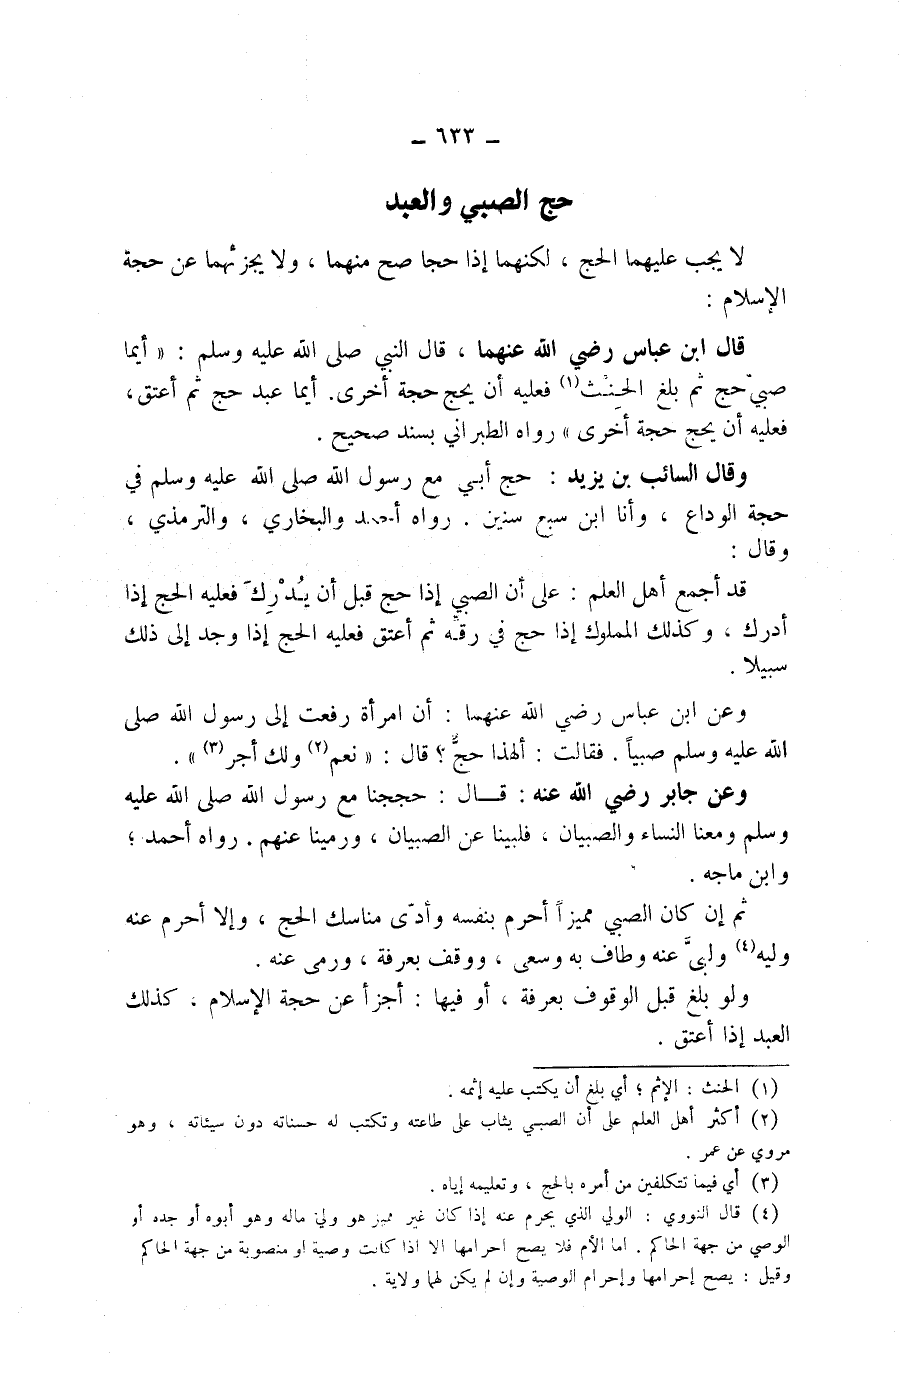 ــ ٦٣٣ ــ
حج الصبي والعبد
لا يجب عليهما الحج ، لكنهما إذا حجا صح منهما ، ولا يجزئهما عن حجة
الإسلام :
قال ابن عباس رضي الله عنهما ، قال النبي صلى الله عليه وسلم : « أيما
صبيّ حج ثم بلغ الحِنْث(١) فعليه أن يحج حجة أخرى. أيما عبد حج ثم أعتق ،
فعليه أن يحج حجة أخرى » رواه الطبراني بسند صحيح .
وقال السائب بن يزيد : حج أبي مع رسول الله صلى الله عليه وسلم في
حجة الوداع ، وأنا ابن سبع سنين . رواه أحمد والبخاري ، والترمذي ،
وقال :
قد أجمع أهل العلم : على أن الصبي إذا حج قبل أن يُدْرِكَ فعليه الحج إذا
أدرك ، وكذلك المملوك إذا حج في رقّه ثم أعتق فعليه الحج إذا وجد إلى ذلك
سبيلا .
وعن ابن عباس رضي الله عنهما : أن امرأة رفعت إلى رسول الله صلى
الله عليه وسلم صبياً . فقالت : ألهذا حجٌّ ؟ قال : « نعم(٢) ولك أجر(٣) » .
وعن جابر رضي الله عنه : قـــال : حججنا مع رسول الله صلى الله عليه
وسلم ومعنا النساء والصبيان ، فلبينا عن الصبيان ، ورمينا عنهم . رواه أحمد ؛
وابن ماجه .
ثم إن كان الصبي مميزاً أحرم بنفسه وأدّى مناسك الحج ، وإلا أحرم عنه
وليه(٤) ولبىَّ عنه وطاف به وسعى ، ووقف بعرفة ، ورمى عنه .
ولو بلغ قبل الوقوف بعرفة ، أو فيها : أجزأ عن حجة الإسلام ، كذلك
العبد إذا أعتق .
(١) الحنث : الإثم ؛ أي بلغ أن يكتب عليه إثمه .
(٢) أكثر أهل العلم على أن الصبي يثاب على طاعته وتكتب له حسناته دون سيئاته ، وهو
مروي عن عمر .
(٣) أي فيما تتكلفين من أمره بالحج ، وتعليمه إياه .
(٤) قال النووي : الولي الذي يحرم عنه إذا كان غير مميز هو ولي ماله وهو أبوه أو جده أو
الوصي من جهة الحاكم . اما الأم فلا يصح احرامها الا اذا كانت وصية او منصوبة من جهة الحاكم
وقيل : يصح إحرامها وإحرام الوصية وإن لم يكن لهما ولاية .